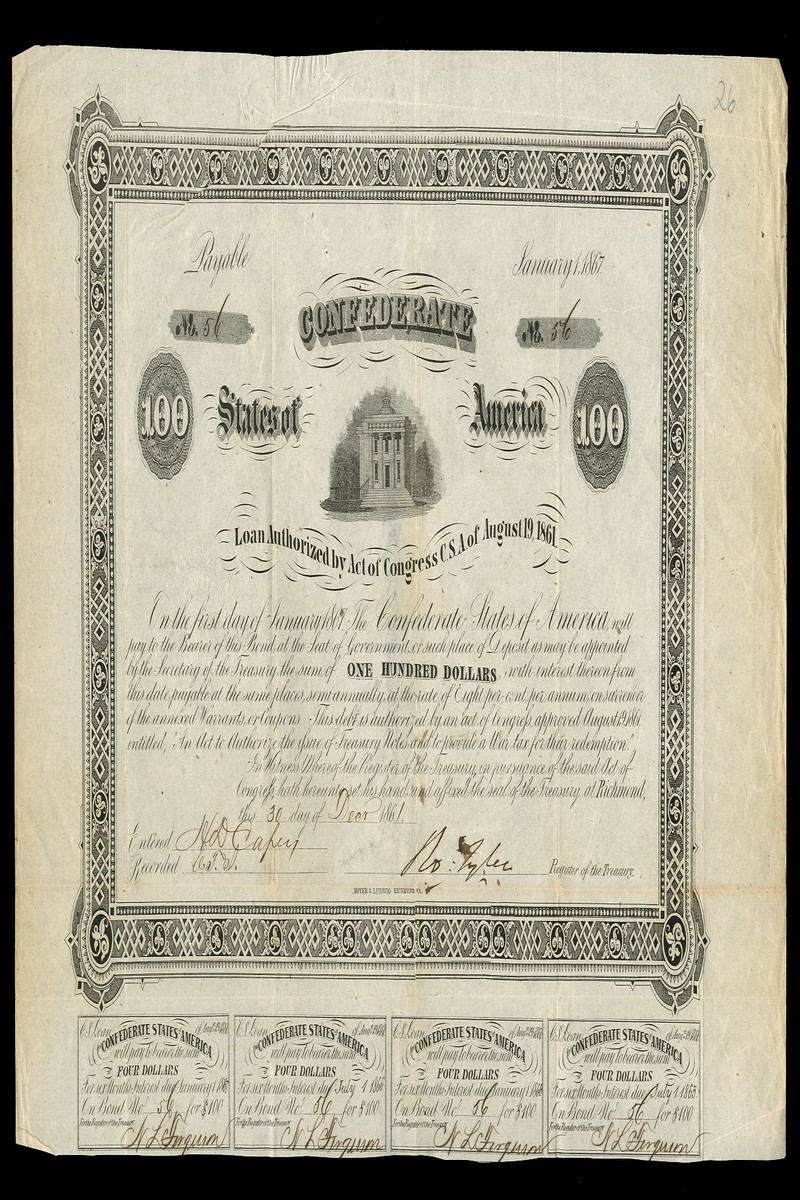 26
Payable January 1, 1867.
No. 56 No. 56
CONFEDERATE
100 States of America 100
Loan Authorized by Act of Congress C.S.A of August 19, 1861.
On the first day of January 1867. The Confederate States of America, will
pay to the Bearer of this Bond, at the Seat of Government, or such place of Deposit as may be appointed
by the Secretary of the Treasury, the sum of ONE HUNDRED DOLLARS, with interest thereon from
this date, payable at the same places, semi-annually, at the rate of Eight per cent. per annum, on surrender
of the annexed Warrants, or Coupons. This debt is authorized by an act of Congress, approved August 19, 1861.
entitled, "An Act to Authorize the issue of Treasury Notes and to provide a War tax for their redemption."
In Witness Whereof, the Register of the Treasury, in pursuance of the said Act of
Congress, hath hereunto set his hand, and affixed the seal of the Treasury, at Richmond,
this 30 day of Decr 1861.
Entered H D Capers
Recorded
Ro: Tyler Register of the Treasury.
HOYER & LUDWIG, RICHMOND VA.
C.S. Loan of Aug. 19, 1861
CONFEDERATE STATES AMERICA
will pay to bearer the sum
FOUR DOLLARS
For six Months Interest due January 1
On Bond No. 56 for $100
For the Register of the Treasury
N L Ferguson
C.S. Loan of Aug. 19, 1861
CONFEDERATE STATES AMERICA
will pay to bearer the sum
FOUR DOLLARS
For six Months Interest due July 1 1866.
On Bond No. 56 for $100
For the Register of the Treasury
N L Ferguson
C.S. Loan of Aug. 19, 1861
CONFEDERATE STATES AMERICA
will pay to bearer the sum
FOUR DOLLARS
For six Months Interest due January 1 1866
On Bond No. 56 for $100
For the Register of the Treasury
N L Ferguson
C.S. Loan of Aug. 19, 1861
CONFEDERATE STATES AMERICA
will pay to bearer the sum
FOUR DOLLARS
For six Months Interest due July 1 1865.
On Bond No. 56 for $100
For the Register of the Treasury
N L Ferguson